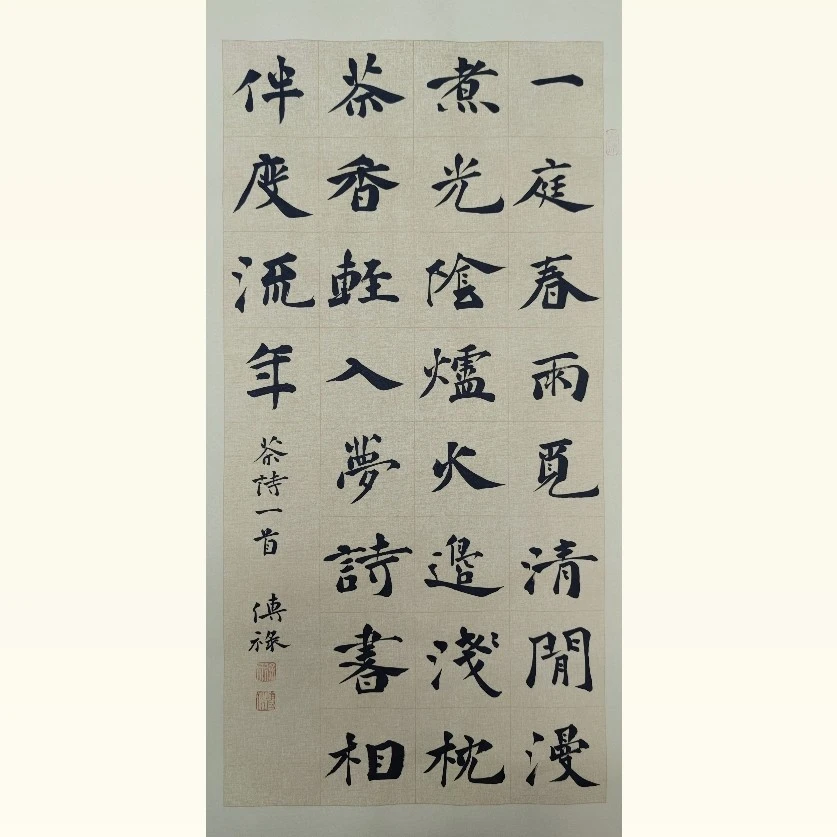 一庭春雨覓清閒漫
煮光陰爐火邊淺枕
茶香輕入夢詩書相
伴度流年
茶詩一首 傳祿